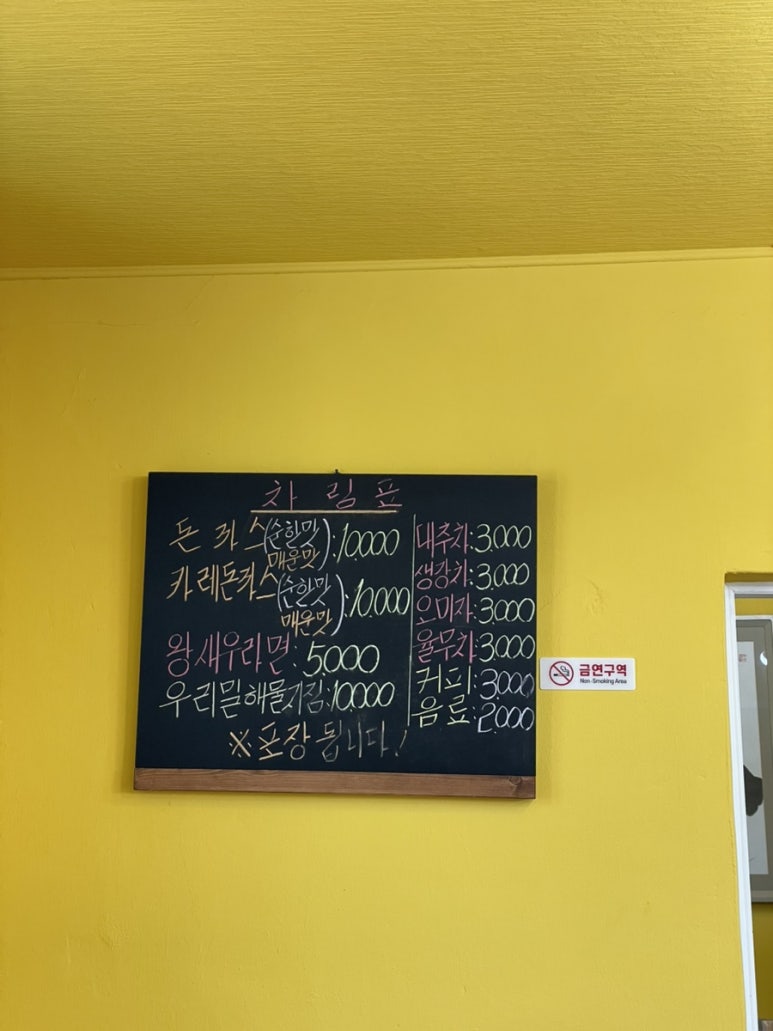 차림표
돈까스(순한맛
매운맛):10.000
카레돈까스(순한맛
매운맛):10.000
왕새우라면:5000
우리밀해물지짐:10.000
※포장됩니다!
대추차:3.000
생강차:3.000
오미자:3.000
율무차:3.000
커피:3.000
음료:2.000
금연구역
Non-Smoking Area